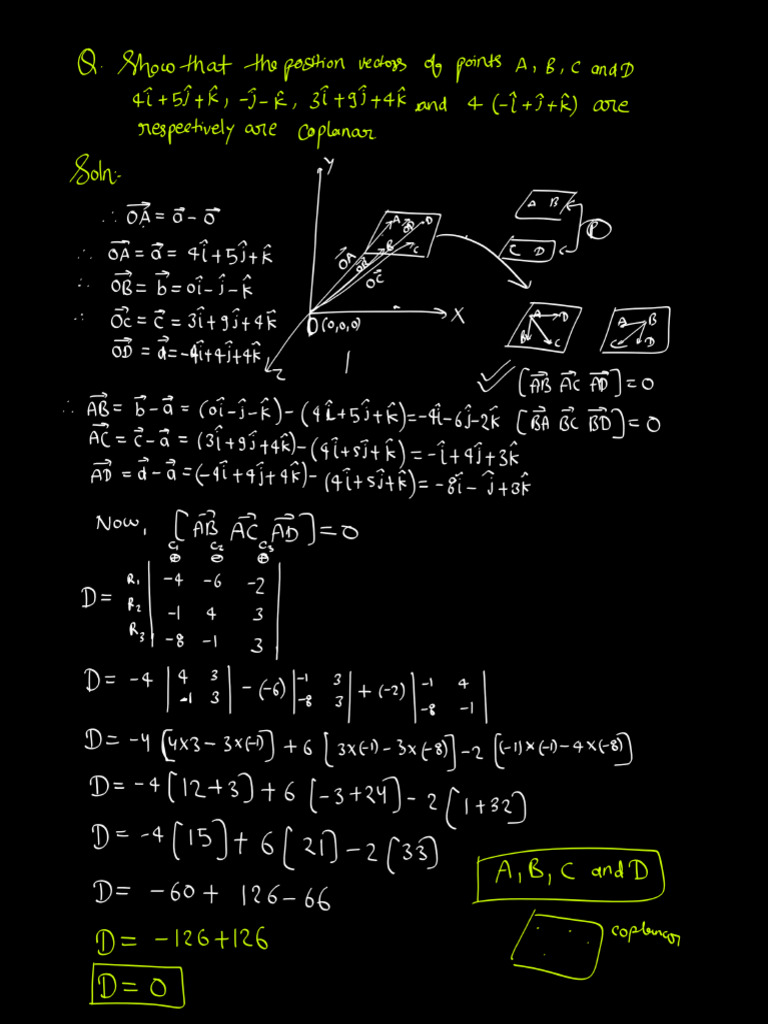 Q. Show that the position vectors of points A, B, C and D
4î+5ĵ+k̂, -ĵ-k̂, 3î+9ĵ+4k̂ and 4(-î+ĵ+k̂) are
respectively are coplanar
Soln:-
∴ OA⃗ = a⃗ - o⃗
∴ OA⃗ = a⃗ = 4î+5ĵ+k̂
∴ OB⃗ = b⃗ = 0î-ĵ-k̂
∴ OC⃗ = c⃗ = 3î+9ĵ+4k̂
OD⃗ = d⃗ = -4î+4ĵ+4k̂
Y
A D
B
C
OA⃗
OB⃗
OC⃗
OD⃗
O(0,0,0)
X
Z
A B
C D
P
A D
B C
A B
C D
[AB⃗ AC⃗ AD⃗]=0
[BA⃗ BC⃗ BD⃗]=0
∴ AB⃗ = b⃗-a⃗ = (0î-ĵ-k̂)-(4î+5ĵ+k̂)=-4î-6ĵ-2k̂
AC⃗ = c⃗-a⃗ = (3î+9ĵ+4k̂)-(4î+5ĵ+k̂)=-î+4ĵ+3k̂
AD⃗ = d⃗-a⃗ = (-4î+4ĵ+4k̂)-(4î+5ĵ+k̂)=-8î-ĵ+3k̂
Now, [AB⃗ AC⃗ AD⃗]=0
C1 C2 C3
⊕ ⊖ ⊕
R1 | -4 -6 -2 |
D= R2 | -1 4 3 |
R3 | -8 -1 3 |
D= -4 |4 3; -1 3| -(-6) |-1 3; -8 3| +(-2) |-1 4; -8 -1|
D= -4[4×3-3×(-1)]+6[3×(-1)-3×(-8)]-2[(-1)×(-1)-4×(-8)]
D= -4[12+3]+6[-3+24]-2[1+32]
D= -4[15]+6[21]-2[33]
D= -60+126-66
D= -126+126
D=0
A, B, C and D
coplanar